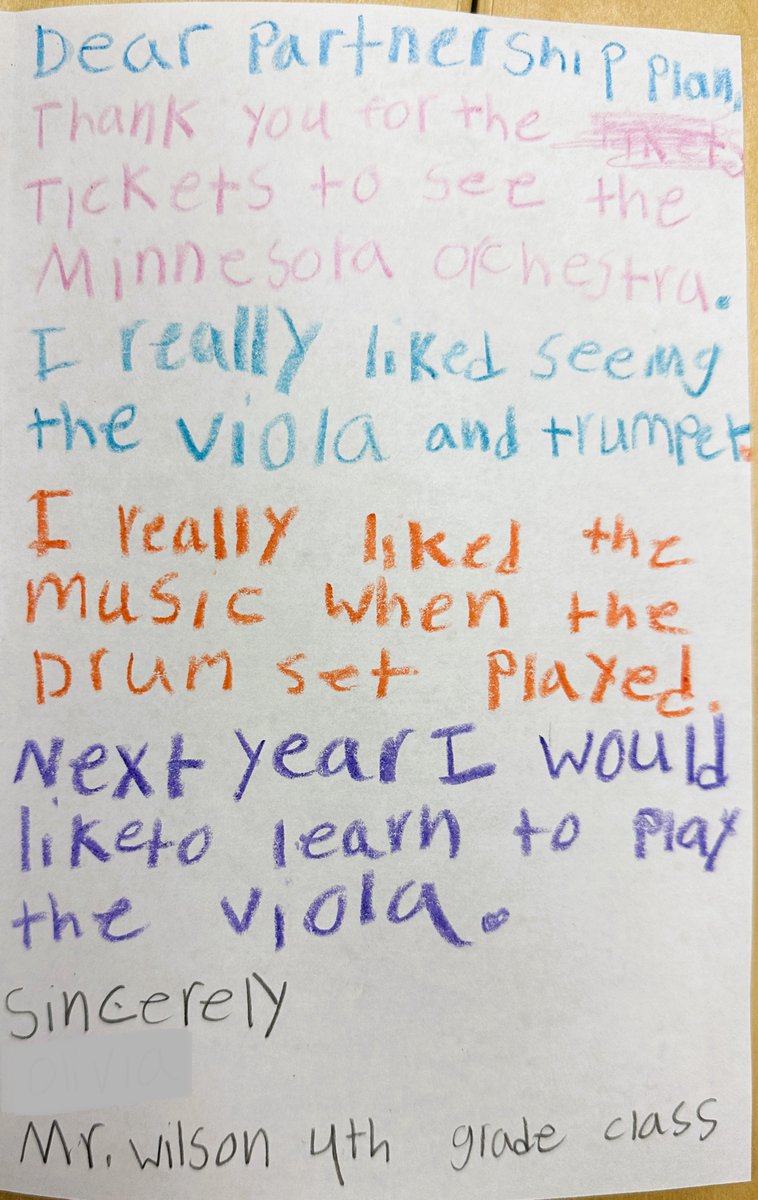 Dear Partnership plan,
Thank you for the
Tickets to see the
Minnesota orchestra.
I really liked seeing
the viola and trumpet.
I really liked the
music when the
Drum set played.
Next year I would
liketo learn to play
the viola.
Sincerely
Mr. wilson 4th grade class